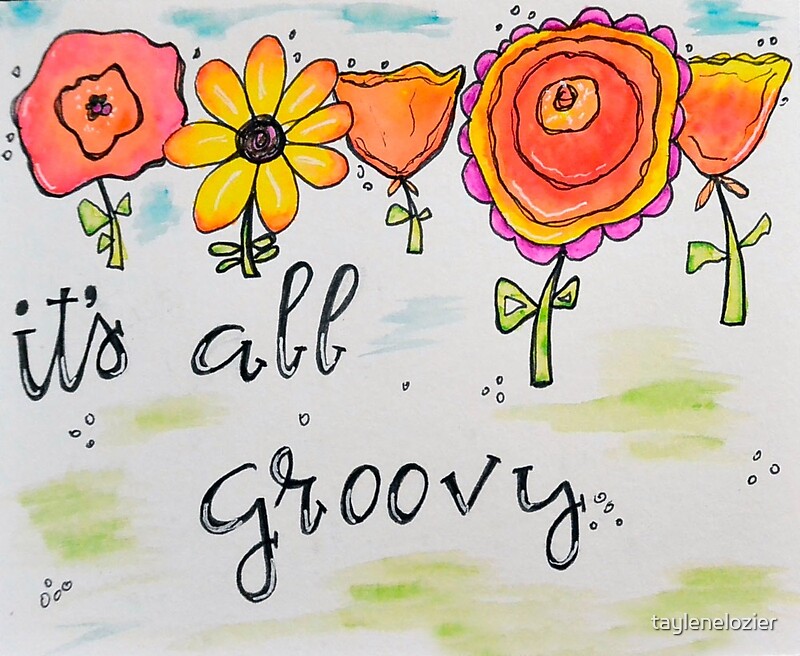 it's all
groovy
taylenelozier